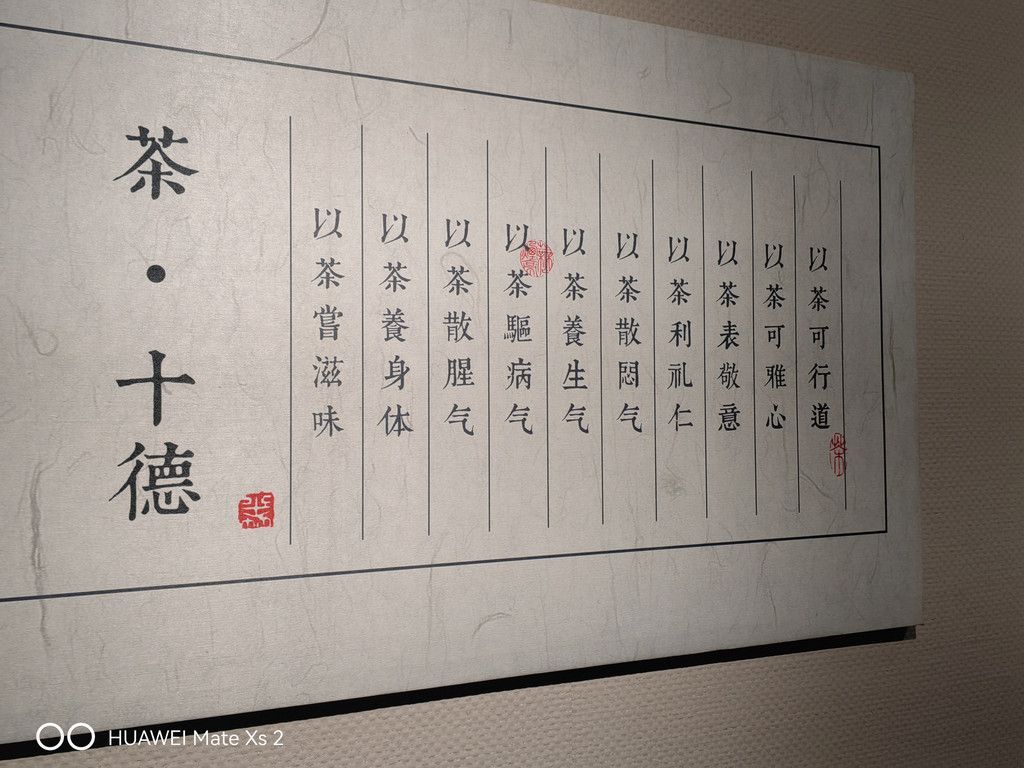 茶·十德
以茶嘗滋味
以茶養身体
以茶散腥气
以茶驅病气
以茶養生气
以茶散悶气
以茶利礼仁
以茶表敬意
以茶可雅心
以茶可行道
HUAWEI Mate Xs 2